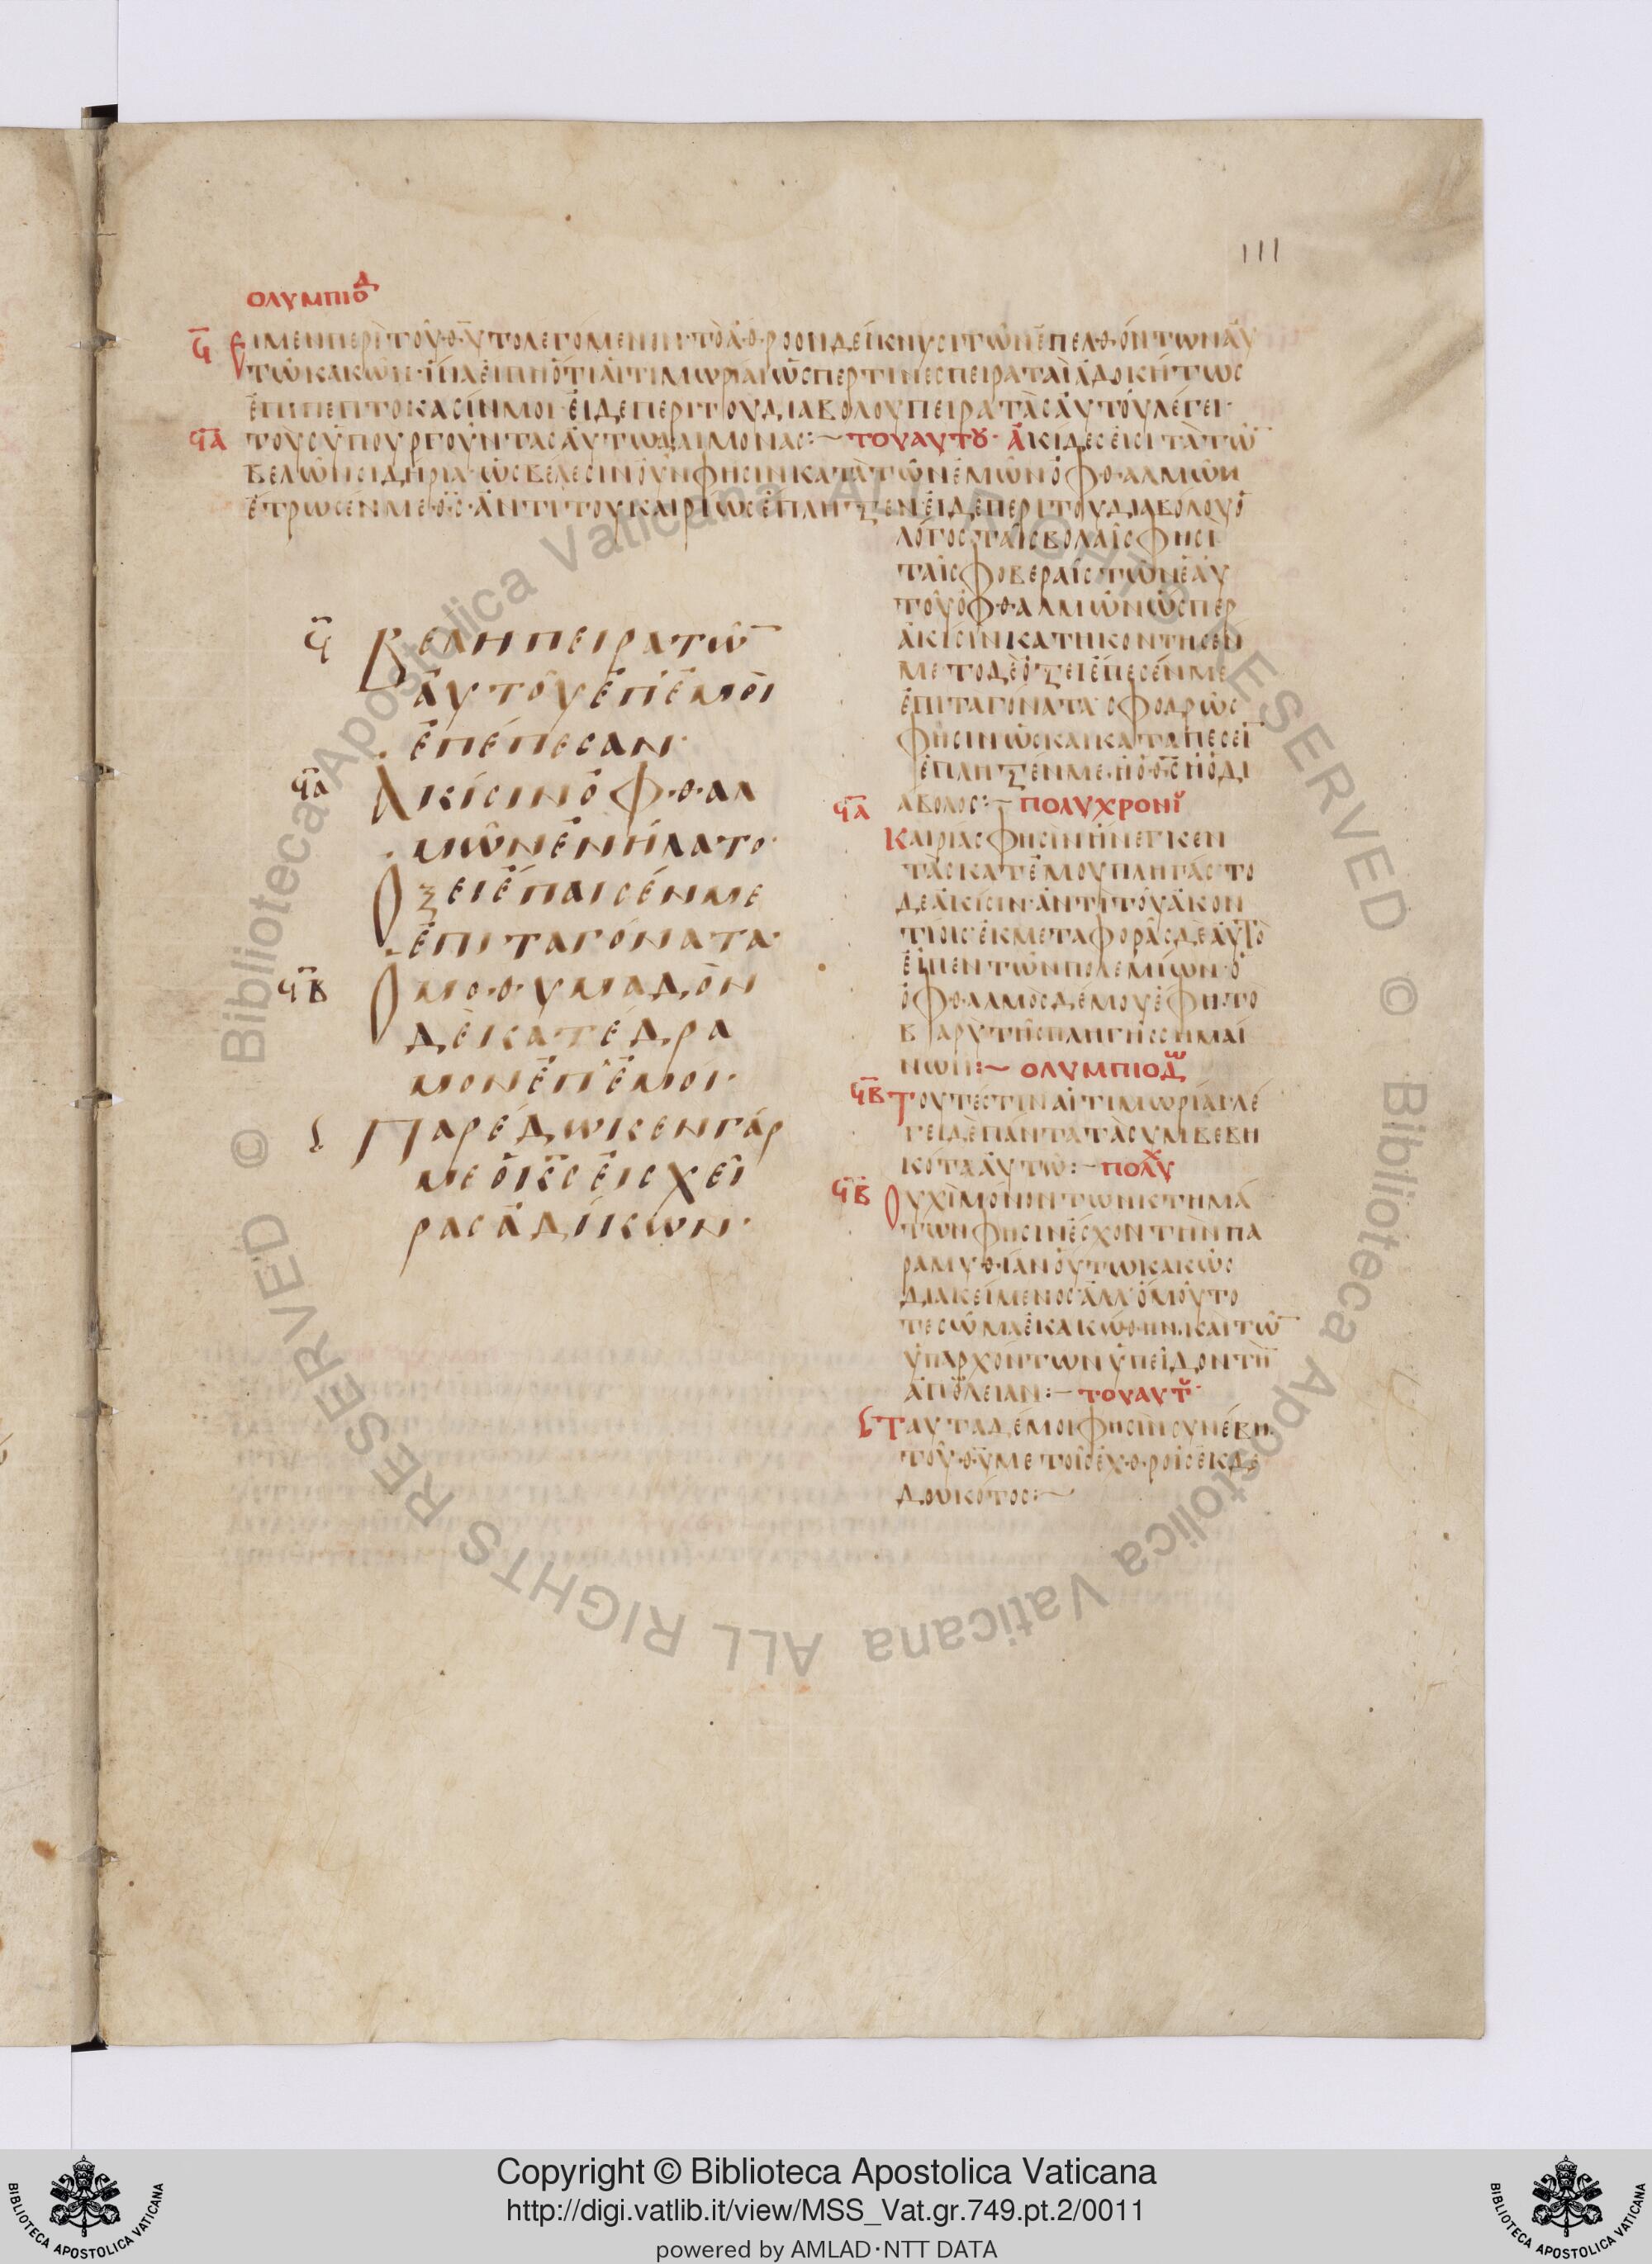 111
ΟΛΥΜΠΙΟΔ
Ϟ ΕΙ ΜΕΝ ΠΕΡῚ ΤΟΥ͂ Θ̅Υ̅ ΤΟ ΛΕΓΟΜΕΝΟΝ· ΤῸ ἈΘΡΟΟΝ ΔΕΊΚΝΥΣΙ ΤΩ͂Ν ἘΠΕΛΘΌΝΤΩΝ ΑΥ
ΤΩ͂ ΚΑΚΩ͂Ν· ὍΤΙ ΑἹ ΤΙΜΩΡΊΑΙ ὭΣΠΕΡ ΤΙΝΕΣ ΠΕΙΡΑΤΑῚ ἈΔΟΚΉΤΩΣ
ἘΠΙΠΕΠΤΩΚΑΣΊΝ ΜΟΙ· ΕἸ ΔΕ ΠΕΡῚ ΤΟΥ͂ ΔΙΑΒΟΛΟΥ ΠΕΙΡΑΤᾺΣ ἈΥΤΟΥ͂ ΛΈΓΕΙ·
ϞΑ ΤΟῪΣ ὙΠΟΥΡΓΟΥ͂ΝΤΑΣ ἈΥΤΩ͂ ΔΑΙΜΟΝΑΣ:~ ΤΟΥ ΑΥΤΟΥ· ἈΚΊΔΕΣ ΕἸΣΙ ΤᾺ ΤΩ̅
ΒΕΛΩ͂Ν ΣΙΔΗΡΙΑ· ὩΣ ΒΈΛΕΣΙΝ ΟΥ̓͂Ν ΦΗΣΙΝ ΚΑΤᾺ ΤΩ͂Ν ἘΜΩ͂Ν ὈΦΘΑΛΜΩ͂Ν
ἜΤΡΩΣΈΝ ΜΕ Ὁ Θ̅Σ̅· ἈΝΤῚ ΤΟΥ ΚΑΙΡΊΩΣ ἘΠΛΗΞΕΝ· ΕἸ ΔΕ ΠΕΡῚ ΤΟΥ ΔΙΑΒΌΛΟΥ Ὁ
ΛΌΓΟΣ ΤΑΙ͂Σ ΒΟΛΑΙ͂Σ ΦΗΣΙ
ΤΑΙ͂Σ ΦΟΒΕΡΑΙ͂Σ ΤΩ͂Ν ἙΑΥ
ΤΟΥ͂ ὈΦΘΑΛΜΩ͂Ν ὭΣΠΕΡ
ἈΚΊΣΙΝ ΚΑΤΗΚΟΝΤΗΣΈΝ
ΜΕ ΤΟ ΔῈ ὈΞΕΙ ἘΠΕΣΈΝ ΜΕ
ἘΠῚ ΤΑ ΓΌΝΑΤΑ ΣΦΟΔΡΩ͂Σ
ΦΗΣΙΝ ὩΣ ΚΑΙ ΚΑΤΑΠΕΣΕΙ̅
ἘΠΛΗΞΈΝ ΜΕ· Ἢ Ὁ Θ̅Σ̅ Ἢ Ὁ ΔΙ
ΑΒΟΛΟΣ:~ ΠΟΛΥΧΡΟΝΙΟΥ
ϞΑ ΚΑΙΡΊΑΣ ΦΗΣῚΝ ἬΝΕΓΚΕΝ
ΤᾺΣ ΚΑΤ' ἘΜΟΥ ΠΛΗΓΆΣ· ΤΟ
ΔῈ ἈΚΊΣΙΝ· ἈΝΤῚ ΤΟΥ͂ ἈΚΟΝ
ΤΙΟΙΣ· ἘΚ ΜΕΤΑΦΟΡΑ͂Σ ΔῈ ἈΥΤῸ
ΕἾΠΕΝ ΤΩ͂Ν ΠΟΛΕΜΊΩΝ· Ὁ
ὈΦΘΑΛΜῸΣ Δ' ἘΜΟΥ ἘΦΗ· ΤῸ
ΒΑΡῪ ΤΗ͂Σ ΠΛΗΓΗ͂Σ ΣΗΜΑΊ
ΝΩΝ:~ ΟΛΥΜΠΙΟΔΩ
ϞΒ ΤΟΥΤΈΣΤΙΝ ΑἹ ΤΙΜΩΡΊΑΙ· ΛΈ
ΓΕΙ ΔῈ ΠΆΝΤΑ ΤᾺ ΣΥΜΒΕΒΗ
ΚΌΤΑ ἈΥΤΩ͂:~ ΠΟΛΥΧ
ϞΒ ΟΥΧῚ ΜΌΝΟΝ ΤΩ͂Ν ΚΤΗΜΆ
ΤΩΝ ΦΗΣΙΝ ἘΣΧΟΝ ΤῊΝ ΠΑ
ΡΑΜΥΘΊΑΝ ὉΎΤΩ ΚΑΚΩ͂Σ
ΔΙΑΚΕΊΜΕΝΟΣ· ἈΛΛ' ὉΜΟΥ͂ ΤΟ
ΤΕ ΣΩ͂ΜΑ ἘΚΑΚΏΘΗΝ· ΚΑΙ ΤΩ̅
ὙΠΑΡΧΌΝΤΩΝ ὙΠΕΙ͂ΔΟΝ ΤῊ̅
ἈΠΏΛΕΙΑΝ:~ ΤΟΥ ΑΥΤΟΥ·
ΤΑΥΤΑ ΔΈ ΜΟΙ ΦΗΣΙΝ ΣΥΝΈΒΗ·
ΤΟΥ͂ Θ̅Υ̅ ΜΕ ΤΟΙ͂Σ ἘΧΘΡΟΙ͂Σ ἘΚΔΕ
ΔΩΚΌΤΟΣ:~
Ϟ ΒΕΛΗ ΠΕΙΡΑΤΩ̅
ἈΥΤΟΥ͂ ἘΠ' ἘΜΟῚ
ἘΠΈΠΕΣΑΝ·
ϞΑ ἈΚΊΣΙΝ ὈΦΘΑΛ
ΜΩ͂Ν ἘΝΉΛΑΤΟ·
ΟΞΕΙ ἘΠΑΙΣΈΝ ΜΕ
ἘΠῚ ΤΑ ΓΌΝΑΤΑ·
ϞΒ ΟΜΟΘΥΜΑΔῸΝ
ΔῈ ΚΑΤΈΔΡΑ
ΜΟΝ ἘΠ' ἘΜΟΙ·
ΠΑΡΈΔΩΚΕΝ ΓΆΡ
ΜΕ Ὁ Κ̅Σ̅ ΕἸΣ ΧΕΙ͂
ΡΑΣ ἈΔΊΚΩΝ·
Copyright © Biblioteca Apostolica Vaticana
http://digi.vatlib.it/view/MSS_Vat.gr.749.pt.2/0011
powered by AMLAD·NTT DATA
BIBLIOTECA APOSTOLICA VATICANA
BIBLIOTECA APOSTOLICA VATICANA
© Biblioteca Apostolica Vaticana ALL RIGHTS RESERVED
© Biblioteca Apostolica Vaticana ALL RIGHTS RESERVED